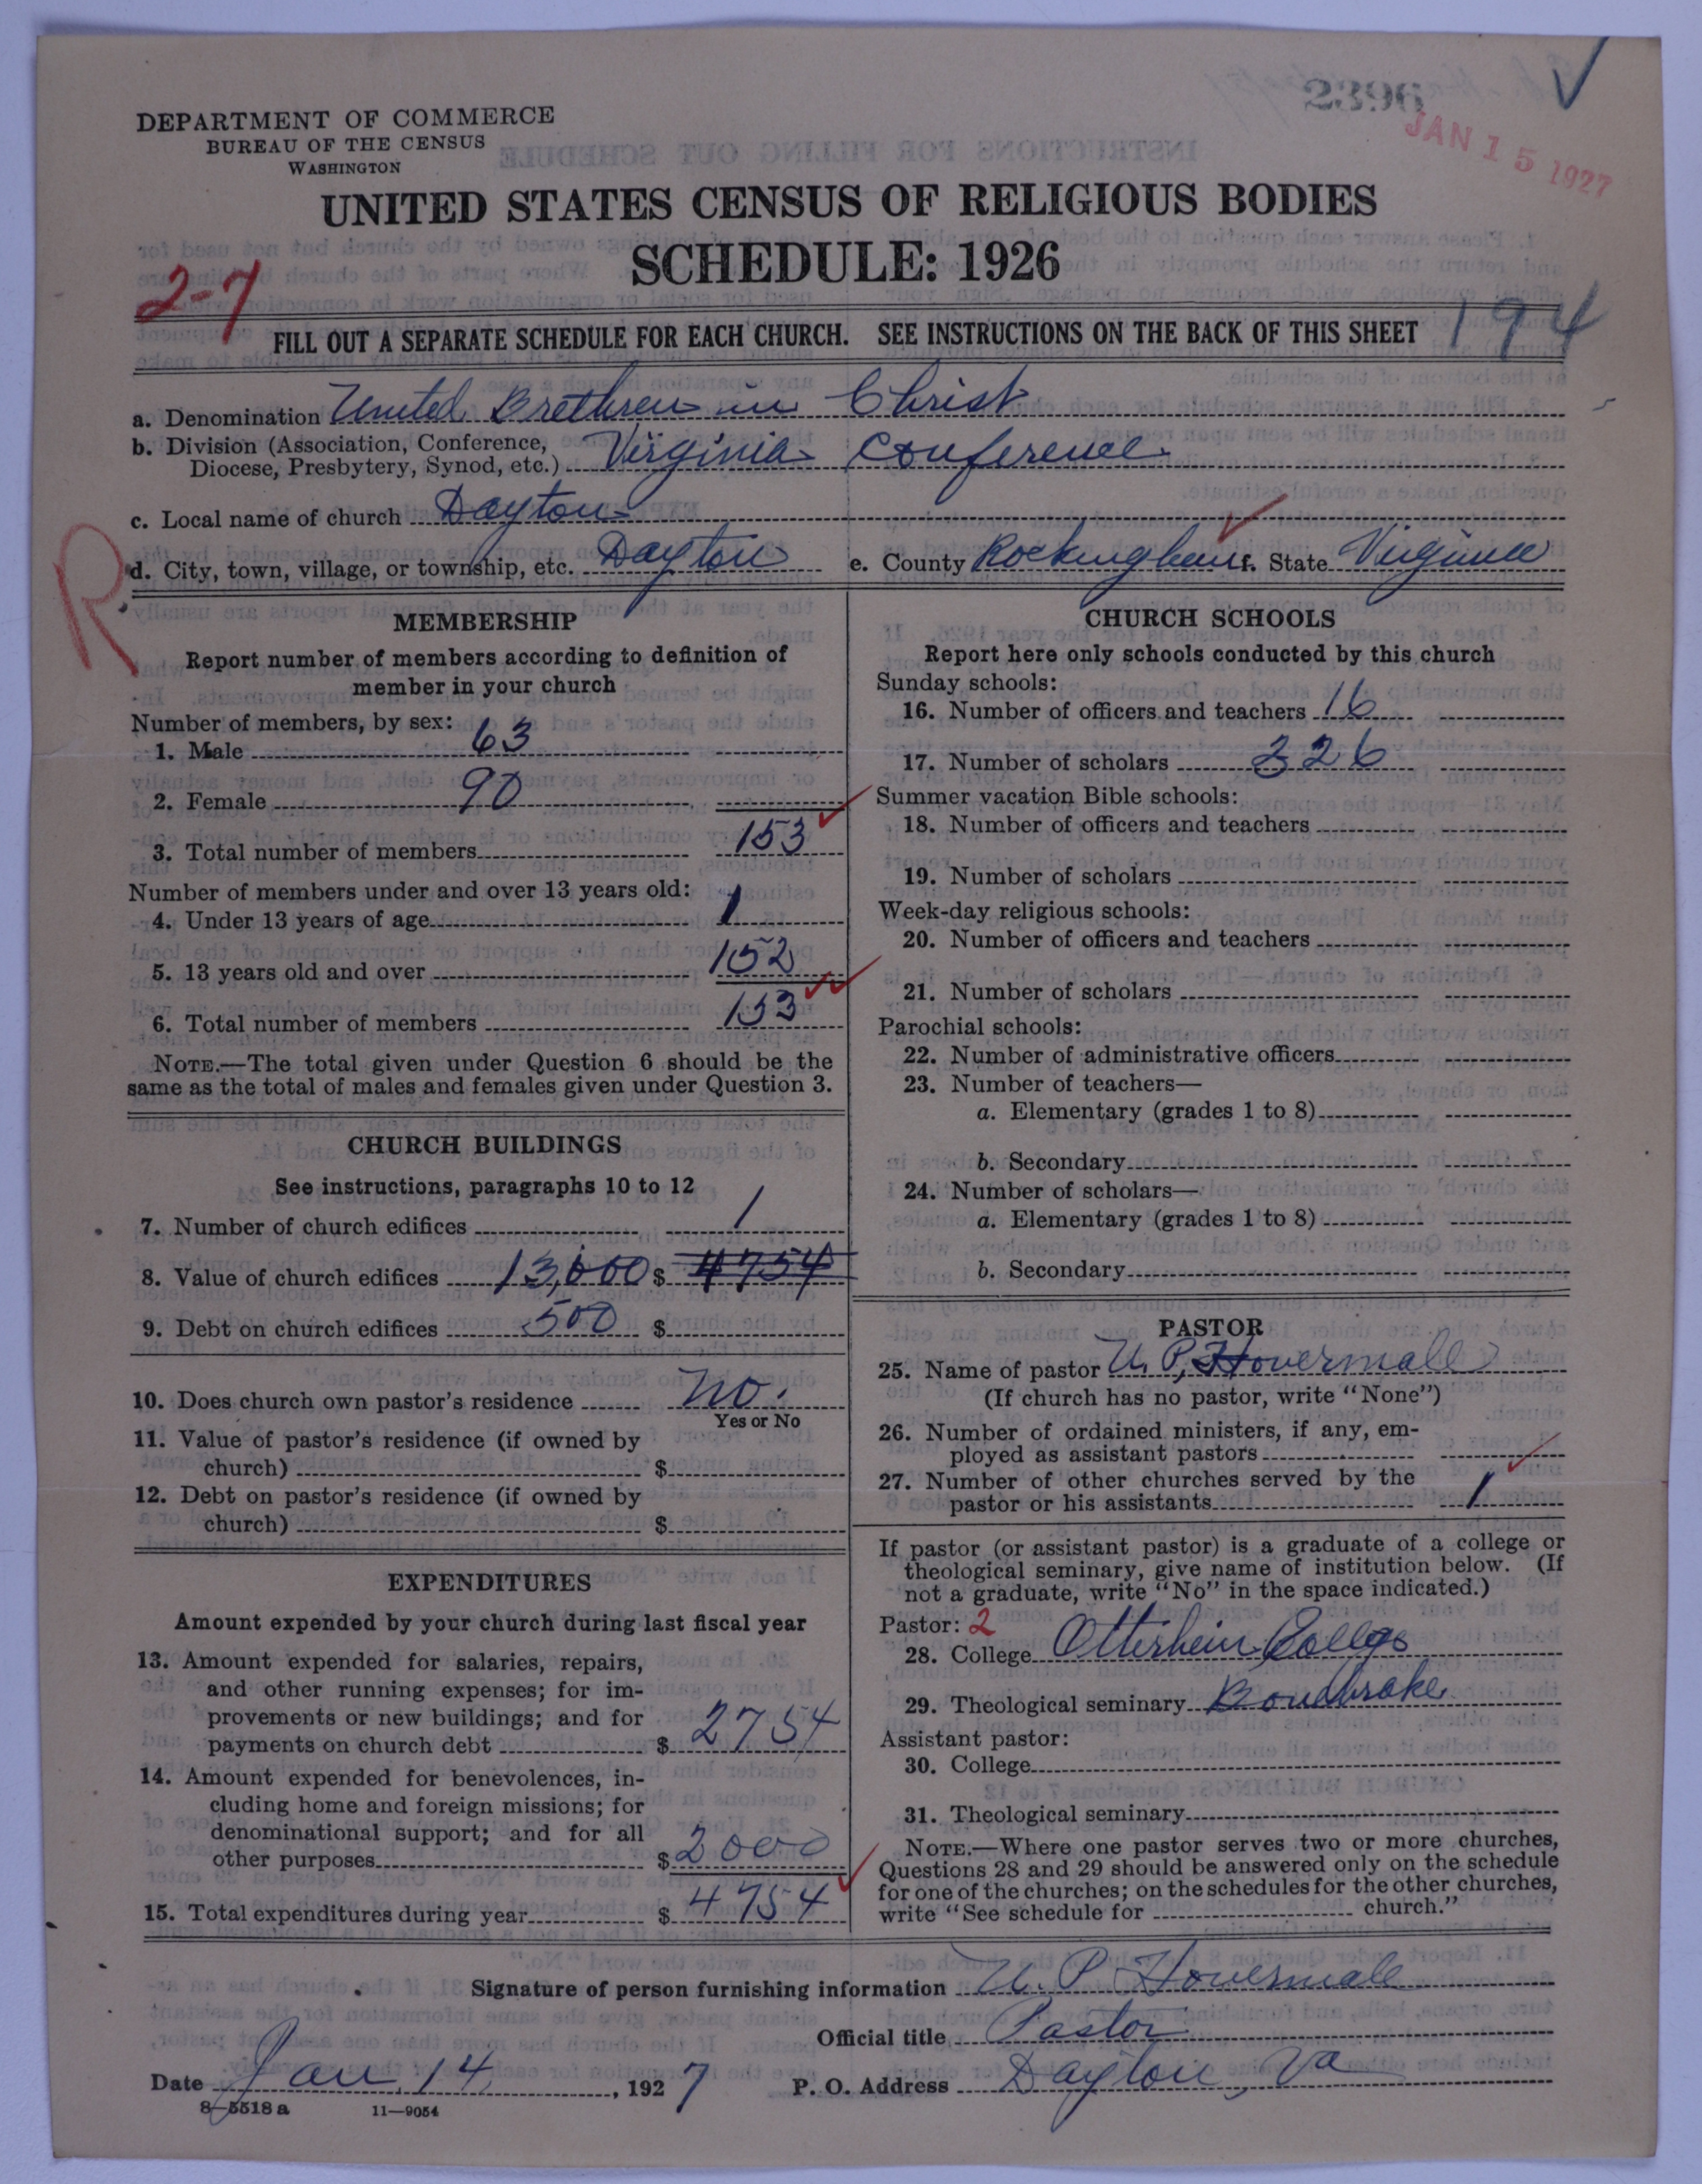 2396
JAN 15 1927
DEPARTMENT OF COMMERCE
BUREAU OF THE CENSUS
WASHINGTON
UNITED STATES CENSUS OF RELIGIOUS BODIES
SCHEDULE: 1926
2-7
FILL OUT A SEPARATE SCHEDULE FOR EACH CHURCH. SEE INSTRUCTIONS ON THE BACK OF THIS SHEET
194
a. Denomination United Brethren in Christ
b. Division (Association, Conference,
Diocese, Presbytery, Synod, etc.) Virginia Conference
c. Local name of church Dayton
R
d. City, town, village, or township, etc. Dayton e. County Rockingham f. State Virginia
MEMBERSHIP
Report number of members according to definition of
member in your church
Number of members, by sex:
1. Male 63
2. Female 90
3. Total number of members 153
Number of members under and over 13 years old:
4. Under 13 years of age 1
5. 13 years old and over 152
6. Total number of members 153
NOTE.—The total given under Question 6 should be the
same as the total of males and females given under Question 3.
CHURCH BUILDINGS
See instructions, paragraphs 10 to 12
7. Number of church edifices 1
8. Value of church edifices 13,000 $ 4754
9. Debt on church edifices 500 $
10. Does church own pastor's residence no.
Yes or No
11. Value of pastor's residence (if owned by
church) $
12. Debt on pastor's residence (if owned by
church) $
EXPENDITURES
Amount expended by your church during last fiscal year
13. Amount expended for salaries, repairs,
and other running expenses; for im-
provements or new buildings; and for
payments on church debt $ 2754
14. Amount expended for benevolences, in-
cluding home and foreign missions; for
denominational support; and for all
other purposes $ 2000
15. Total expenditures during year $ 4754
CHURCH SCHOOLS
Report here only schools conducted by this church
Sunday schools:
16. Number of officers and teachers 16
17. Number of scholars 326
Summer vacation Bible schools:
18. Number of officers and teachers
19. Number of scholars
Week-day religious schools:
20. Number of officers and teachers
21. Number of scholars
Parochial schools:
22. Number of administrative officers
23. Number of teachers—
a. Elementary (grades 1 to 8)
b. Secondary
24. Number of scholars—
a. Elementary (grades 1 to 8)
b. Secondary
PASTOR
25. Name of pastor U. P. Hovermale
(If church has no pastor, write "None")
26. Number of ordained ministers, if any, em-
ployed as assistant pastors
27. Number of other churches served by the
pastor or his assistants 1
If pastor (or assistant pastor) is a graduate of a college or
theological seminary, give name of institution below. (If
not a graduate, write "No" in the space indicated.)
Pastor: 2
28. College Otterbein College
29. Theological seminary Bonebrake
Assistant pastor:
30. College
31. Theological seminary
NOTE.—Where one pastor serves two or more churches,
Questions 28 and 29 should be answered only on the schedule
for one of the churches; on the schedules for the other churches,
write "See schedule for church."
Signature of person furnishing information U. P. Hovermale
Official title Pastor
Date Jan. 14, 1927 P. O. Address Dayton, Va
8-5518 a 11-9054